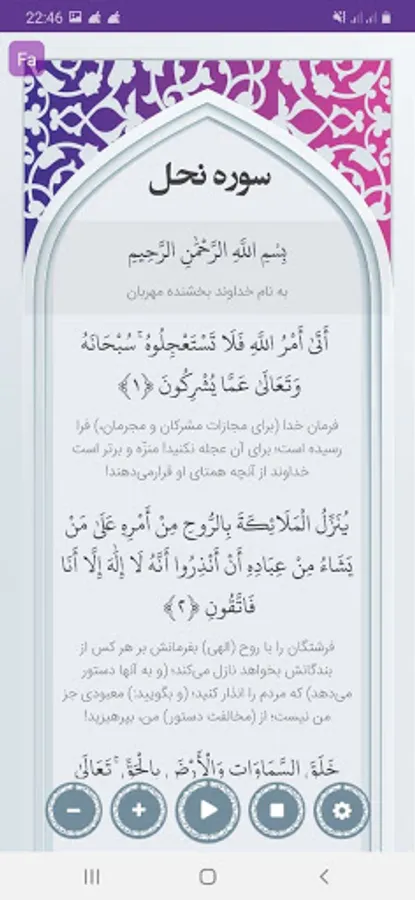 22:46
Fa
سوره نحل
بِسْمِ اللَّهِ الرَّحْمَٰنِ الرَّحِيمِ
به نام خداوند بخشنده مهربان
أَتَىٰ أَمْرُ اللَّهِ فَلَا تَسْتَعْجِلُوهُ ۚ سُبْحَانَهُ
وَتَعَالَىٰ عَمَّا يُشْرِكُونَ ﴿۱﴾
فرمان خدا (برای مجازات مشرکان و مجرمان،) فرا
رسیده است؛ برای آن عجله نکنید! منزّه و برتر است
خداوند از آنچه همتای او قرارمی‌دهند!
يُنَزِّلُ الْمَلَائِكَةَ بِالرُّوحِ مِنْ أَمْرِهِ عَلَىٰ مَنْ
يَشَاءُ مِنْ عِبَادِهِ أَنْ أَنْذِرُوا أَنَّهُ لَا إِلَٰهَ إِلَّا أَنَا
فَاتَّقُونِ ﴿۲﴾
فرشتگان را با روح (الهی) بفرمانش بر هر کس از
بندگانش بخواهد نازل می‌کند؛ (و به آنها دستور
می‌دهد) که مردم را انذار کنید؛ (و بگویید:) معبودی جز
من نیست؛ از (مخالفت دستور) من، بپرهیزید!
خَلَقَ السَّمَاوَاتِ وَالْأَرْضَ بِالْحَقِّ ۚ تَعَالَىٰ